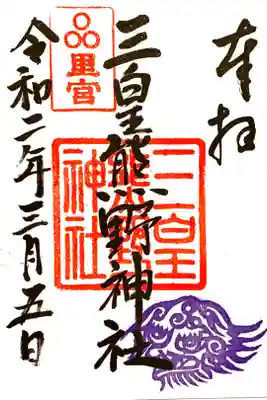 奉拝
三皇熊野神社
三皇
熊野
神社
里宮
令和二年三月五日